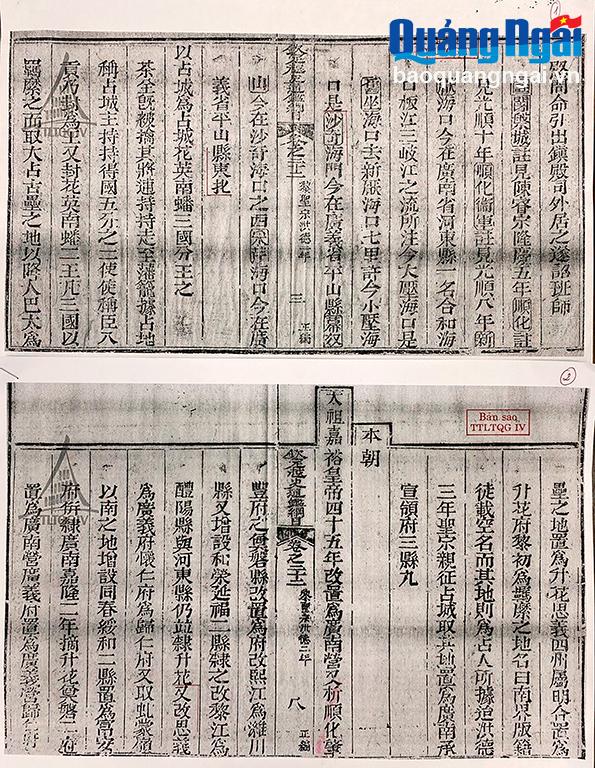 Quảng Ngãi
baoquangngai.vn
殿簡命引出鎮殿司外居之遂詔班師
城註見陳睿宗隆慶五年順化註
見光順十年順化衛軍註見光順八年新
海口今在廣南省河東縣一名合和海
口板江三岐江之流所注今大壓海口是
坐海口去新厭海口七里許今小壓海
口是沙奇海門今在廣義省平山縣靡奴
欽定越史通鑑綱目 卷之二十二 黎聖宗洪德二年 三 正編
山今在沙奇海口之西 海口今在廣
義省平山縣東北
以占城為占城花英南蟠三國分王之
茶全旣被擒其將逋持持走至藩籠據占地
稱占城主持持得國五分之一使使稱臣入
貢乃封為王又封花英南蟠二王凡三國以
羈縻之而取大占古壘之地以降人巴太為
2
Bản sao
TTLTQG IV
壘之地置為升花思義四州屬明合置為
升花府黎初為羈縻之地名曰南界版籍
徒載空名而其地則為占人所據迨洪德
三年聖宗親征占城取其地置為廣南承
宣領府三縣九
本朝
太祖嘉裕皇帝四十五年改置為廣南營又析順化肇
欽定越史通鑑綱目 卷之二十二 黎聖宗洪德二年 八 正編
豐府之奠磐縣改置為府改熙江為濰川
縣又增設和榮延福二縣隸之改黎江為
醴陽縣與河東縣仍並隸升花又改思義
為廣義府懷仁府為歸仁府又取虬蒙嶺
以南之地增設同春綏和二縣置為富安
府併隸廣南嘉隆二年摘升花奠磐二府
置為廣南營廣義府置為廣義營歸仁府